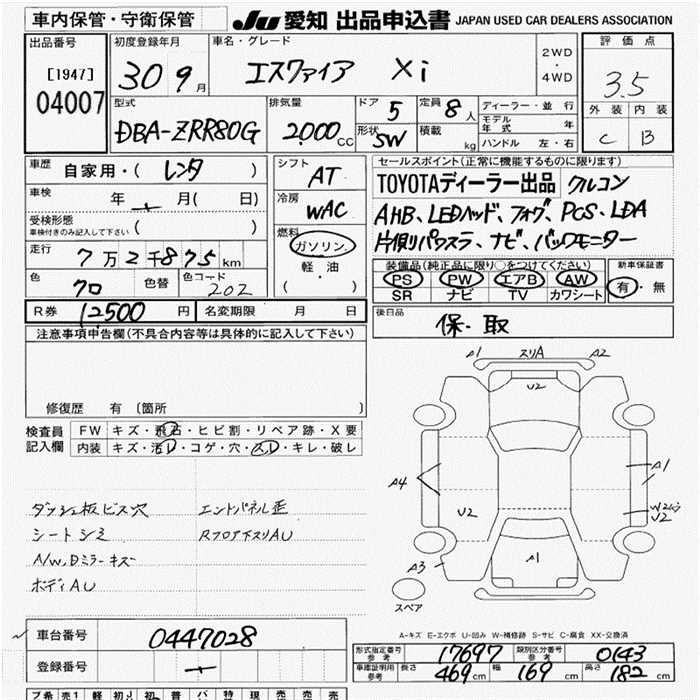 車内保管・守衛保管
JU 愛知 出品申込書 JAPAN USED CAR DEALERS ASSOCIATION
出品番号
[1947]
04007
初度登録年月
30 9 月
車名・グレード
エスクァイア Xi
2WD
・
4WD
評価点
3.5
外装 内装
C B
型式
DBA-ZRR80G
排気量
2,000 CC
ドア 5
形状 SW
定員 8 人
積載 kg
ディーラー・並行
モデル年式 年
ハンドル 左・右
車歴 自家用・( レンタ )
車検 年 月( 日)
受検形態
車検付きのみ記入して下さい ( )
走行 7万2千875 km
色 クロ 色替
色コード 202
R券 12500 円
名変期限 月 日
シフト AT
冷房 WAC
燃料
ガソリン.
軽・油
( )
セールスポイント(正常に機能するものに限ります)
TOYOTAディーラー出品 クルコン
AHB、LEDヘッド、フォグ、PCS、LDA
片側パワスラ、ナビ、バックモニター
装備品(純正品に限り〇をつけてください)
PS PW エアB AW
SR ナビ TV カワシート
新車保証書
有・無
後日品
保・取
注意事項申告欄(不具合内容等は具体的に記入して下さい)
修復歴 有 〔箇所 〕
検査員記入欄
FW キズ・飛石・ヒビ割・リペア跡・X要
内装 キズ・汚れ・コゲ・穴・スレ・キレ・破レ
ダッシュ板ビス穴
シートシミ
A/W、Dミラーキズ
ボディAU
エンドパネル歪
Rフロア下スリAU
A1 スリA A2
U2
A4
A1
U2
U2
A3
A1
スペア
A-キズ E-エクボ U-凹み W-補修跡 S-サビ C-腐食 XX-交換済
車台番号 0447028
登録番号
形式指定番号 参考 17697
類別区分番号 参考 0143
車庫証明用 参考 長さ 469 cm 幅 169 cm 高さ 182 cm